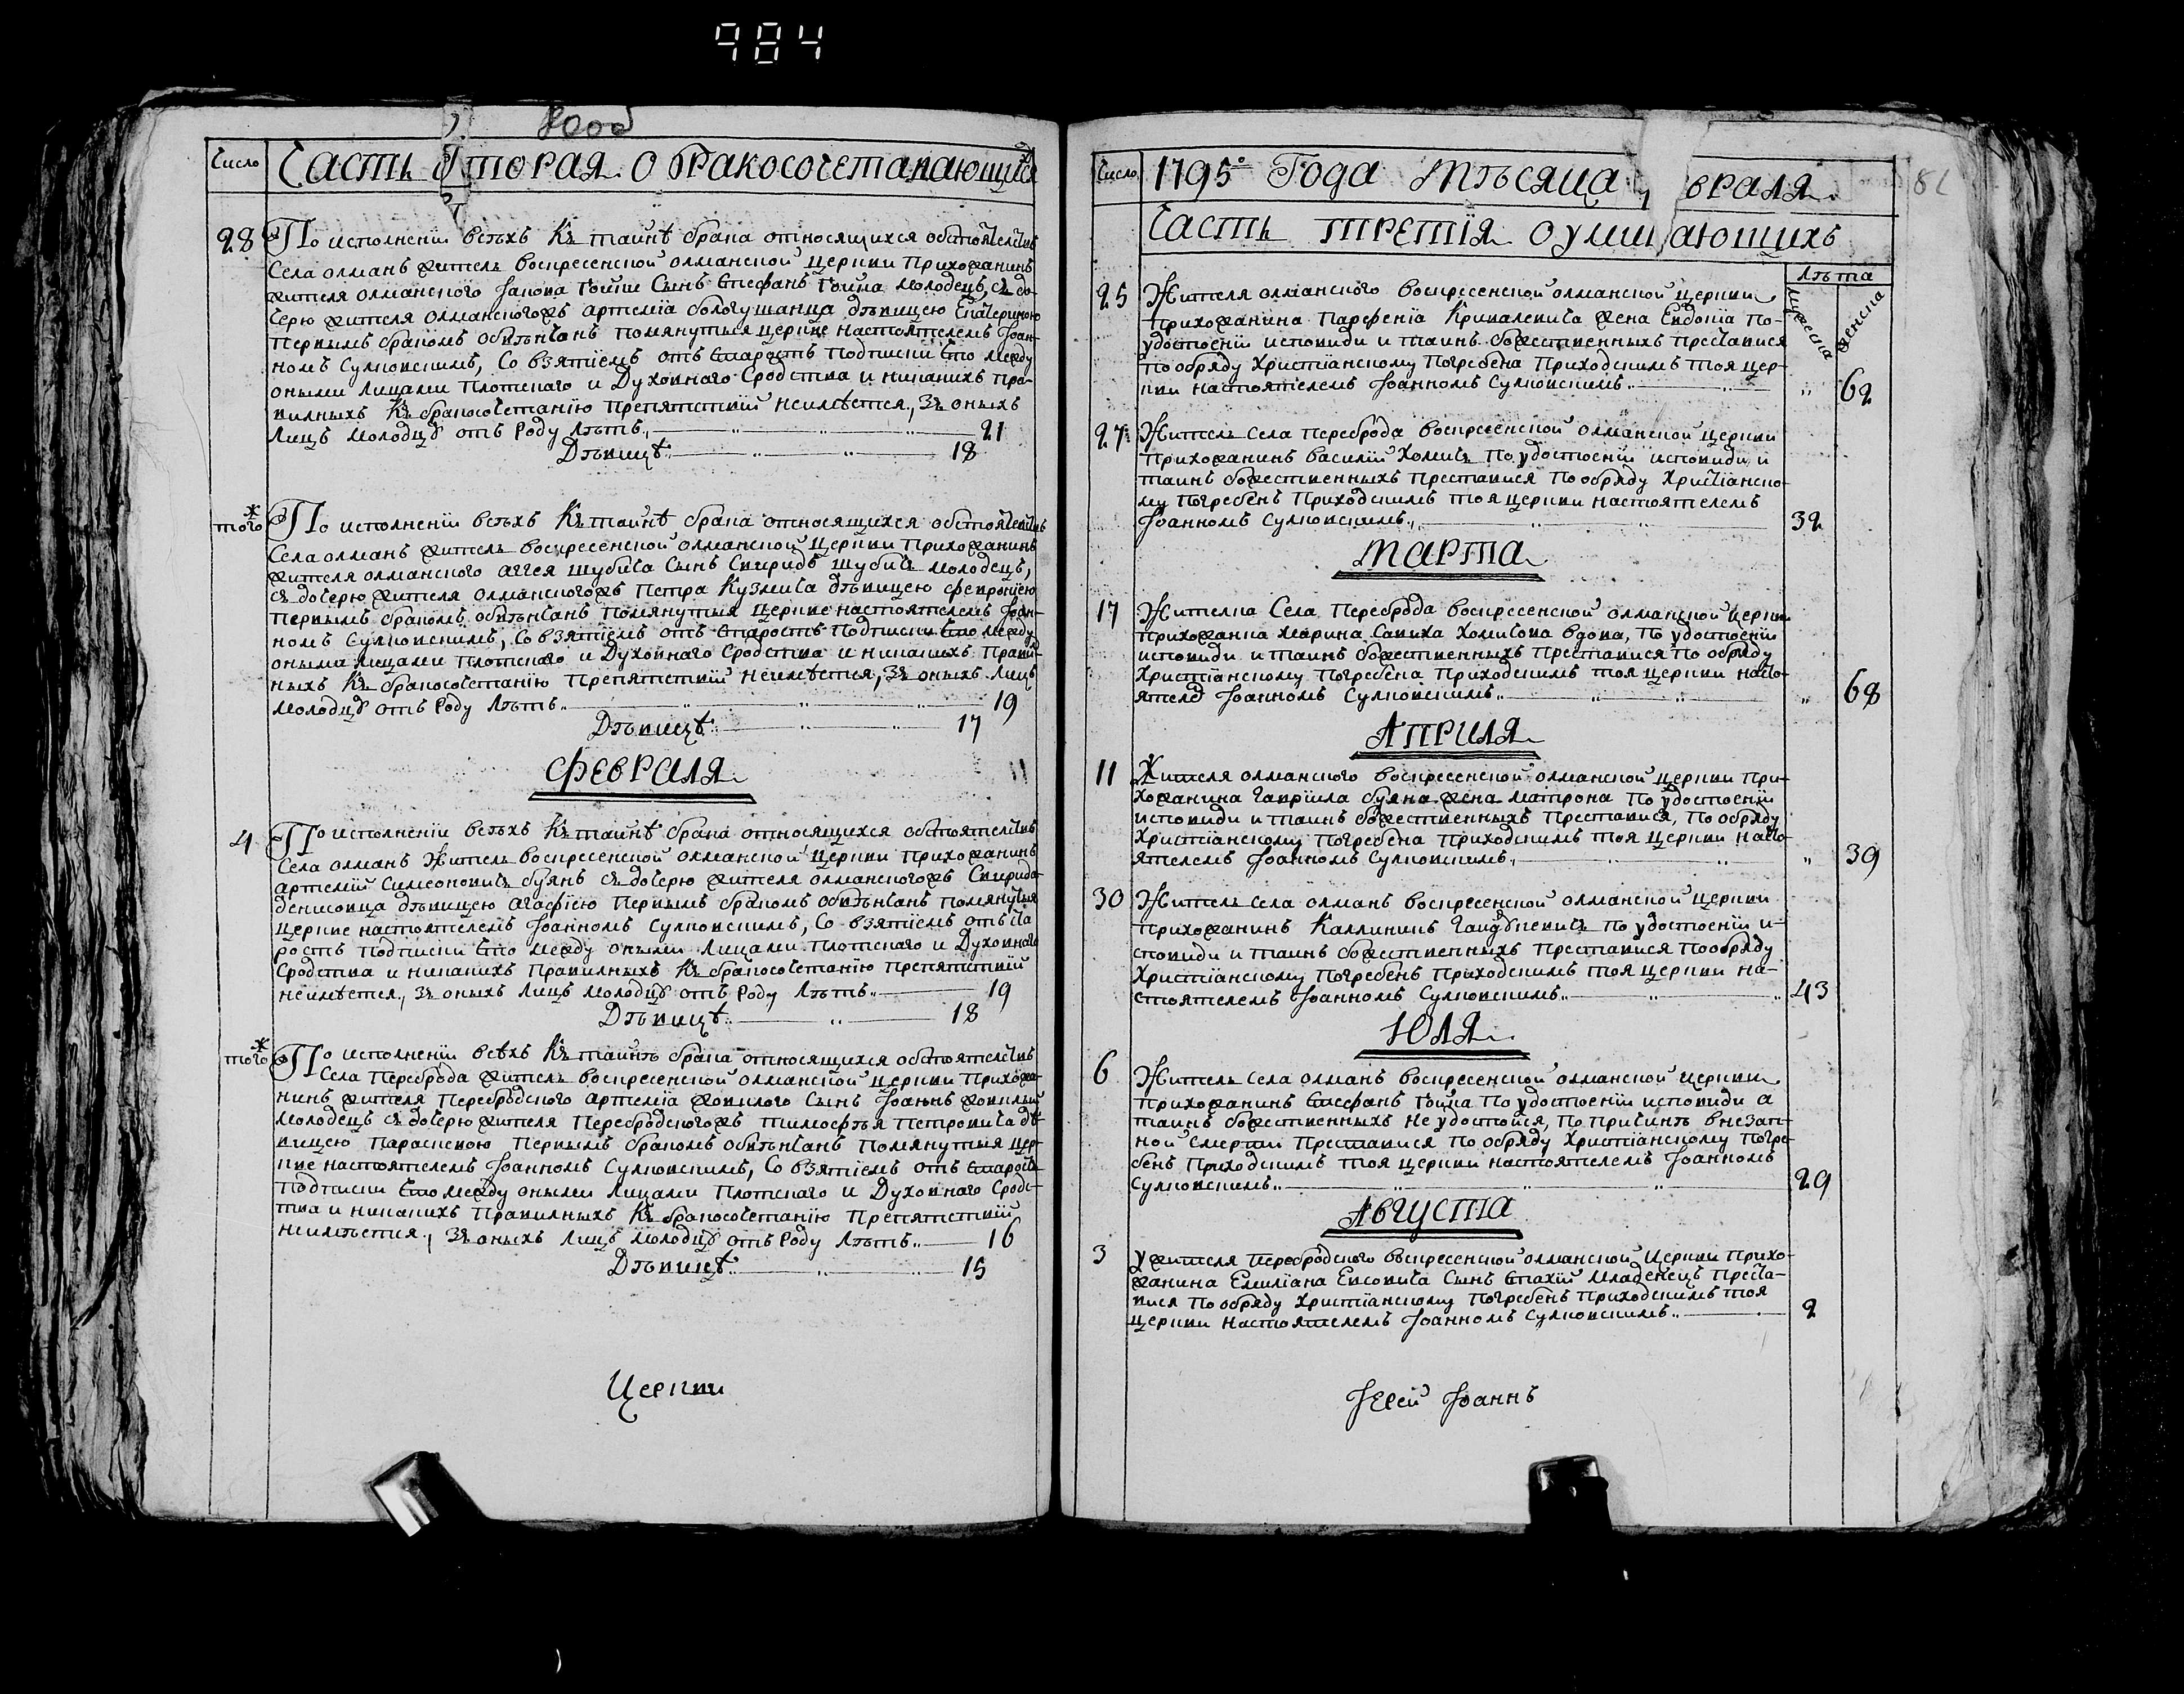 984
Число
Часть вторая о бракосочетавающихся
28 По исполнении всѣхъ Къ таинѣ брака относящихся обстоятелствъ
Села олманъ житель воскресенской олманской церкви прихожанинъ
жителя олманского Іакова Гоши Сынъ Стефанъ Гоина молодецъ, съ до-
черю жителя олманскогожъ артемїа бологушанца дѣвицею Екатериною
первымъ бракомъ обвѣнчанъ помянутыя церкве настоятелемъ Іоан-
номъ Сулковскимъ, Со взятїемъ отъ Старостъ подписки Что между
оными лицами плотского и Духовнаго Сродства и никакихъ пра-
вилныхъ Къ бракосочетанїю препятствїй неимѣется, Зъ оныхъ
лицъ молодцу отъ Роду лѣтъ 21
Дѣвицѣ 18
тогож По исполнении всѣхъ Къ таинѣ брака относящихся обстоятелствъ
Села олманъ житель воскресенской олманской церкви прихожанинъ
жителя олманского аггея шубича Сынъ Спиридъ шубичъ молодецъ,
съ дочерю жителя олманскогожъ Петра Кузмича дѣвицею Февронїею
первымъ бракомъ обвѣнчанъ помянутыя церкве настоятелемъ Іоан-
номъ Сулковскимъ, Со взятїемъ отъ Старостъ подписки Что между
оными лицами плотского и Духовнаго Сродства и никакихъ Правил-
ныхъ Къ бракосочетанїю Препятствїй неимѣется, Зъ оныхъ лицъ
молодцу отъ Роду лѣтъ 19
Дѣвицѣ 17
Февраля
4 По исполнении всѣхъ Къ таинѣ брака относящихся обстоятелствъ
Села олманъ Житель воскресенской олманской церкви прихожанинъ
артемїй Симеоновичъ буянъ съ дочерю жителя олманскогожъ Спирида
денисовца дѣвицею агафїею первымъ бракомъ обвѣнчанъ помянутыя
церкве настоятелемъ Іоанномъ Сулковскимъ, Со взятїемъ отъ Ста
ростъ подписки Что между оными лицами плотского и Духовнаго
Сродства и никакихъ Правилныхъ Къ бракосочетанїю препятствїй
неимѣется, Зъ оныхъ лицъ молодцу отъ Роду лѣтъ 19
Дѣвицѣ 18
тогож По исполнении всѣхъ Къ таинѣ брака относящихся обстоятелствъ
Села Переброда житель воскресенской олманской церкви прихожа-
нинъ жителя Перебродского артемїа ковилого Сынъ Іоаннъ ковилый
молодецъ съ дочерю жителя Перебродскогожъ тимофѣя Петровича дѣ-
вицею параскевою первымъ бракомъ обвѣнчанъ помянутыя цер-
кве настоятелемъ Іоанномъ Сулковскимъ, Со взятїемъ отъ Старостъ
подписки Что между оными лицами плотского и Духовнаго Сродс-
тва и никакихъ Правилныхъ Къ бракосочетанїю препятствїй
неимѣется, Зъ оныхъ лицъ молодцу отъ Роду лѣтъ 16
Дѣвицѣ 15
Церкви
Число
1795 Года Мѣсяца враля
82
Часть третїя о умирающихъ
Лѣта
мужеска
женска
25 Жителя олманского воскресенской олманской церкви
прихожанина Парфенїа Кривалевича жена Евдокїа по-
удостоенїи исповиди и таинъ божественныхъ преставися
по обряду Христїанскому погребена приходскимъ тоя цер-
кви настоятелемъ Іоанномъ Сулковскимъ 62
27 Житель села Переброда воскресенской олманской церкви
прихожанинъ василїй Хомичъ по удостоенїи исповиди и
таинъ божественныхъ преставися по обряду Христїанско-
му погребенъ приходскимъ тоя церкви настоятелемъ
Іоанномъ Сулковскимъ 32
Марта
17 Жителка Села Переброда воскресенской олманской церкви
прихожанка марина Савиха Хомичова вдова, по удостоенїи
исповиди и таинъ божественныхъ преставися по обряду
Христїанскому погребена приходскимъ тоя церкви насто-
ятелем Іоанномъ Сулковскимъ 68
Априля
11 Жителя олманского воскресенской олманской церкви при-
хожанина Гаврїила буяна жена матрона по удостоенїи
исповиди и таинъ божественныхъ преставися, по обряду
Христїанскому погребена приходскимъ тоя церкви насто-
ятелемъ Іоанномъ Сулковскимъ 39
30 Житель села олманъ воскресенской олманской церкви
прихожанинъ Каллиникъ Гайдукевичъ по удостоенїи и-
сповиди и таинъ божественныхъ преставися по обряду
Христїанскому погребенъ приходскимъ тоя церкви на-
стоятелемъ Іоанномъ Сулковскимъ 43
Юля
6 Житель села олманъ воскресенской олманской церкви
прихожанинъ Стефанъ Гоица по удостоенїи исповиди а
таинъ божественныхъ не удостойся, по причинѣ внезап-
ной смерти преставися по обряду Христїанскому погре-
бенъ приходскимъ тоя церкви настоятелемъ Іоанномъ
Сулковскимъ 29
Августа
3 У жителя Перебродского воскресенской олманской Церкви прихо-
жанина Емилїана Евсовича Сынъ Стахїй младенецъ преста-
вися по обряду Христїанскому погребенъ приходскимъ тоя
церкви настоятелемъ Іоанномъ Сулковскимъ 2
Іерей Іоаннъ